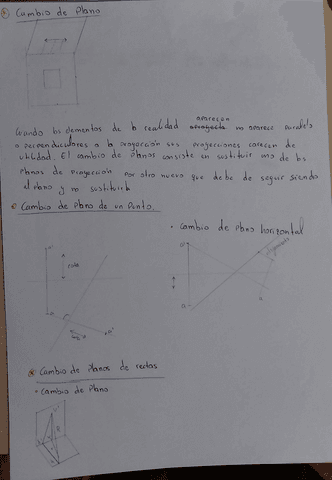 Cambio de Plano
aparezcan
Cuando los elementos de la realidad no aparece paralelos
o perpendiculares a la proyección sus proyecciones carecen de
utilidad. El cambio de planos consiste en sustituir uno de los
Planos de Proyección por otro nuevo que debe de seguir siendo
el plano y no sustituirlo
Cambio de Plano de un Punto.
- Cambio de Plano horizontal
cota
Cambio de Planos de rectas
- Cambio de Plano